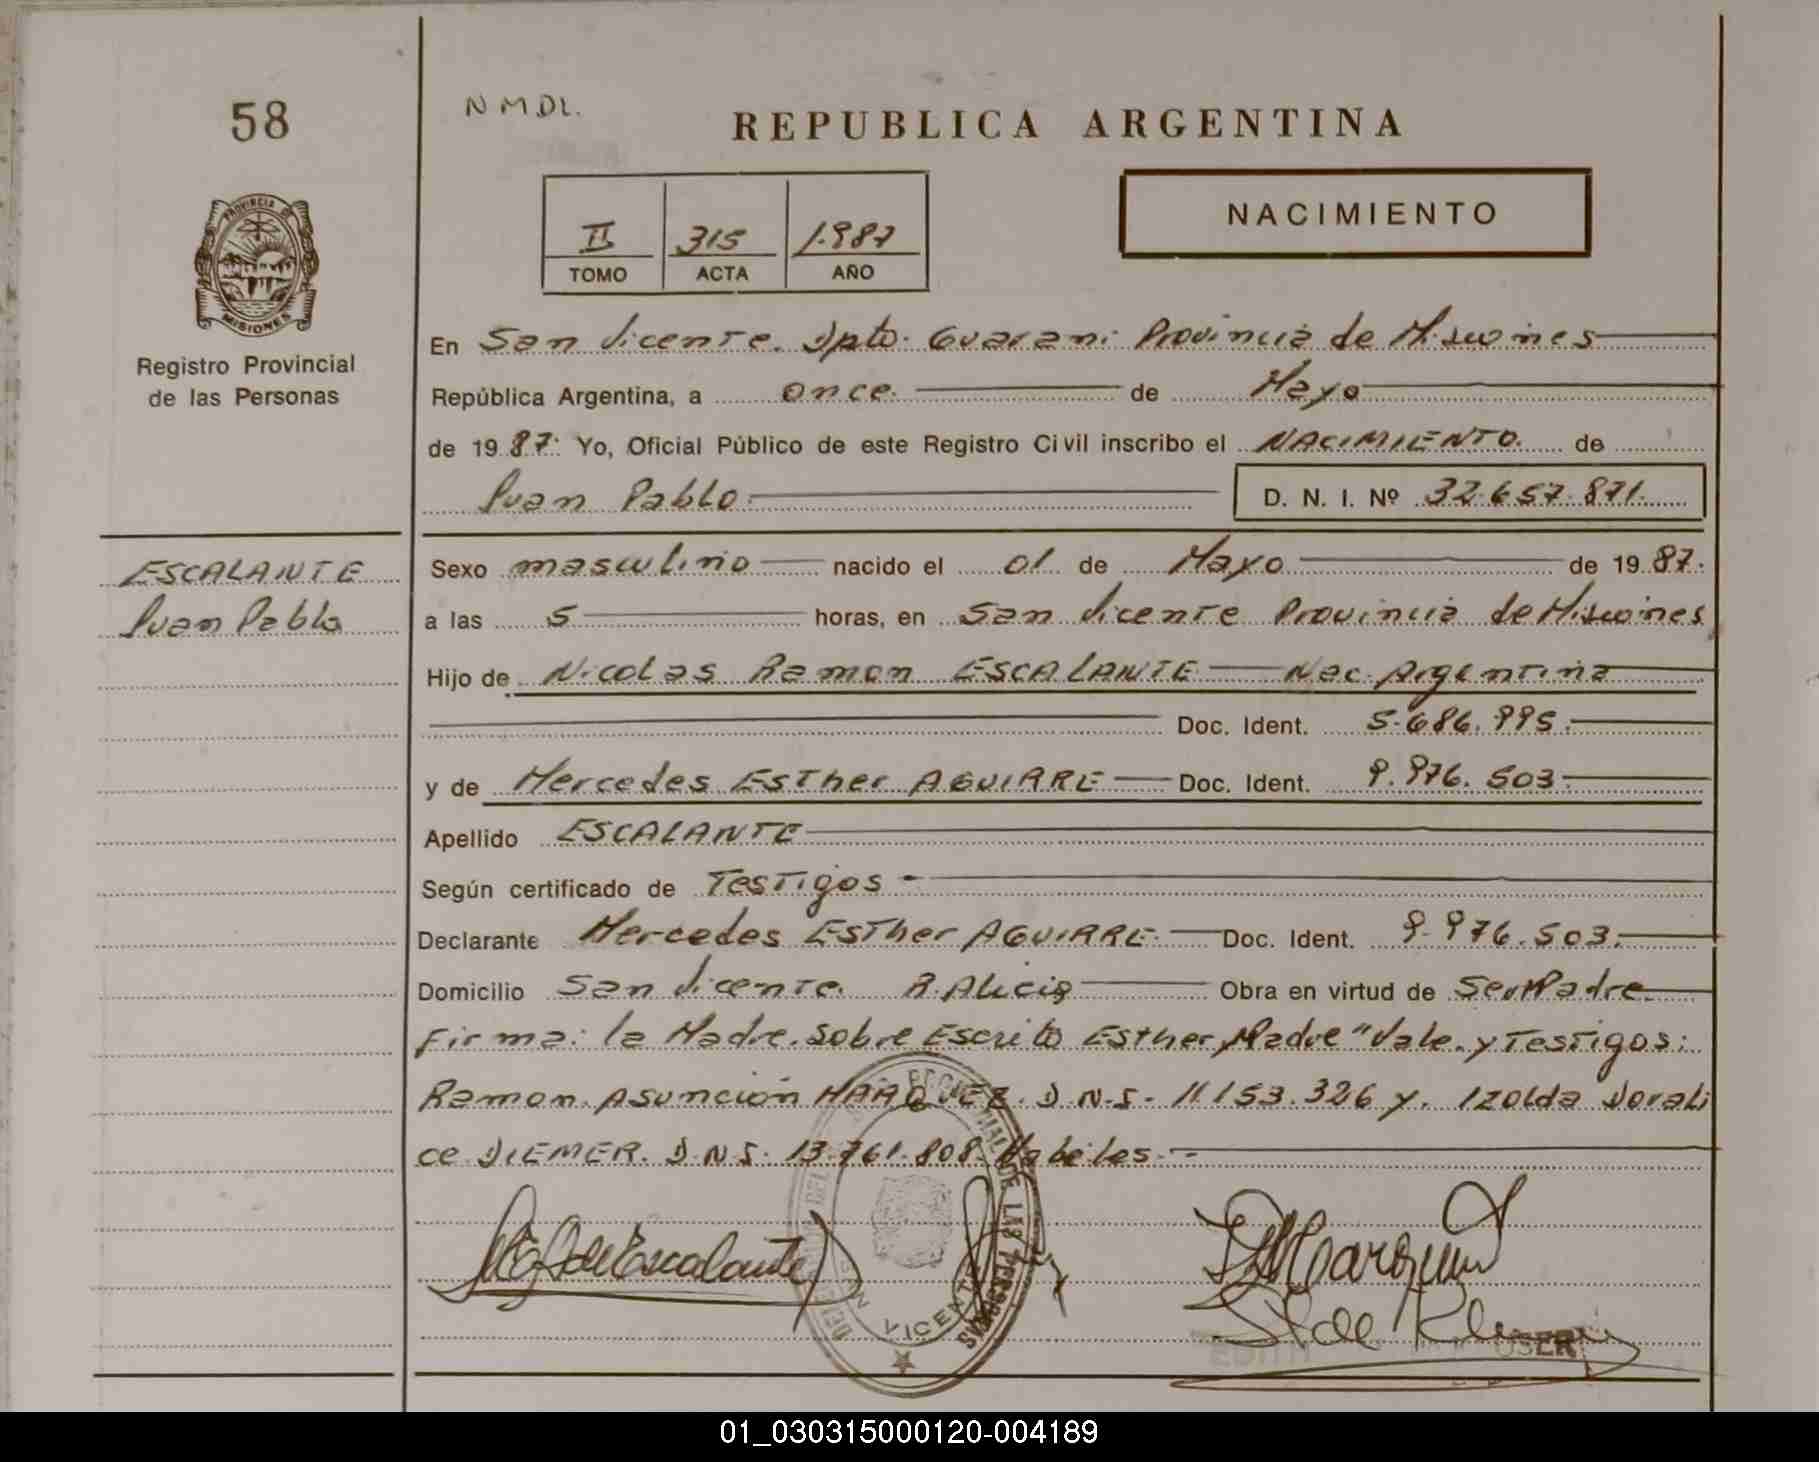 58
NMDL.
REPUBLICA ARGENTINA
II 315 1.987
TOMO ACTA AÑO
NACIMIENTO
PROVINCIA DE
MISIONES
Registro Provincial
de las Personas
En San Vicente. Dpto. Guarani Provincia de Misiones
República Argentina, a once. de Mayo
de 1987. Yo, Oficial Público de este Registro Civil inscribo el NACIMIENTO. de
Juan Pablo. D. N. I. Nº 32.657.871.
ESCALANTE
Juan Pablo
Sexo masculino nacido el 01 de Mayo de 1987.
a las 5 horas, en San Vicente Provincia de Misiones
Hijo de Nicolas Ramon ESCALANTE Nac. Argentina
Doc. Ident. 5.686.995.
y de Mercedes Esther AGUIRRE Doc. Ident. 9.976.503.
Apellido ESCALANTE
Según certificado de Testigos
Declarante Mercedes Esther AGUIRRE. Doc. Ident. 9.976.503.
Domicilio San Vicente. B. Alicia Obra en virtud de Ser Madre.
Firma: la Madre. Sobre Escrito Esther, Madre "Vale. y Testigos:
Ramon Asunción MARQUEZ. D.N.I. 11.153.326 y. Izolda Dorali
ce DIEMER. D.N.I. 13.761.808. Habiles.
DE LAS PERSONAS
VICENTE
EDITH
01_030315000120-004189